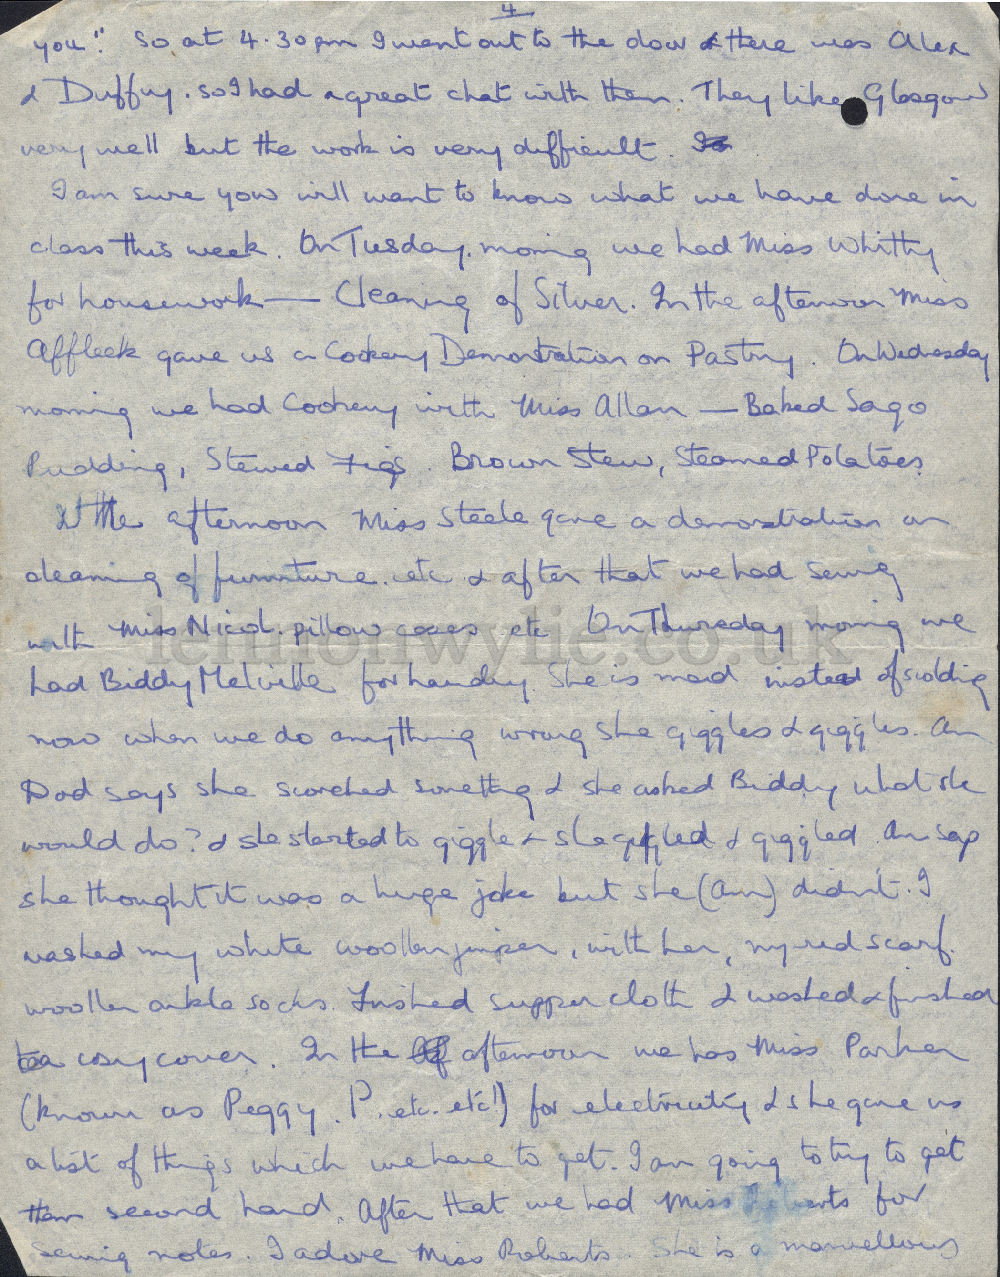 4
you". So at 4.30pm I went out to the door & there was Alex
& Duffy. so I had a great chat with them. They like Glasgow
very well but the work is very difficult.
I am sure you will want to know what we have done in
class this week. On Tuesday morning we had Miss Whitty
for housework — Cleaning of Silver. In the afternoon Miss
Affleck gave us a Cookery Demonstration on Pastry. On Wednesday
morning we had Cookery with Miss Allan — Baked Sago
Pudding, Stewed Figs. Brown Stew, Steamed Potatoes.
In the afternoon Miss Steele gave a demonstration on
cleaning of furniture. etc. & after that we had sewing
with Miss Nicol. pillow cases etc On Thursday morning we
had Biddy Melville for laundry. She is mad instead of scolding
now when we do anything wrong she giggles & giggles. Ann
Dad says she scorched something & she asked Biddy what she
would do? & she started to giggle & she giggled & giggled. Ann says
she thought it was a huge joke but she (Ann) didn't. I
washed my white woollen jumper, with her, my red scarf.
woollen ankle socks. Finished supper cloth & washed & finished
tea cosy cover. In the afternoon we has Miss Parker
(known as Peggy. P. etc. etc!) for electricity & she gave us
a list of things which we have to get. I am going to try to get
them second hand. After that we had Miss Roberts for
sewing notes. I adore Miss Roberts. She is a marvellous
lennonwylie.co.uk